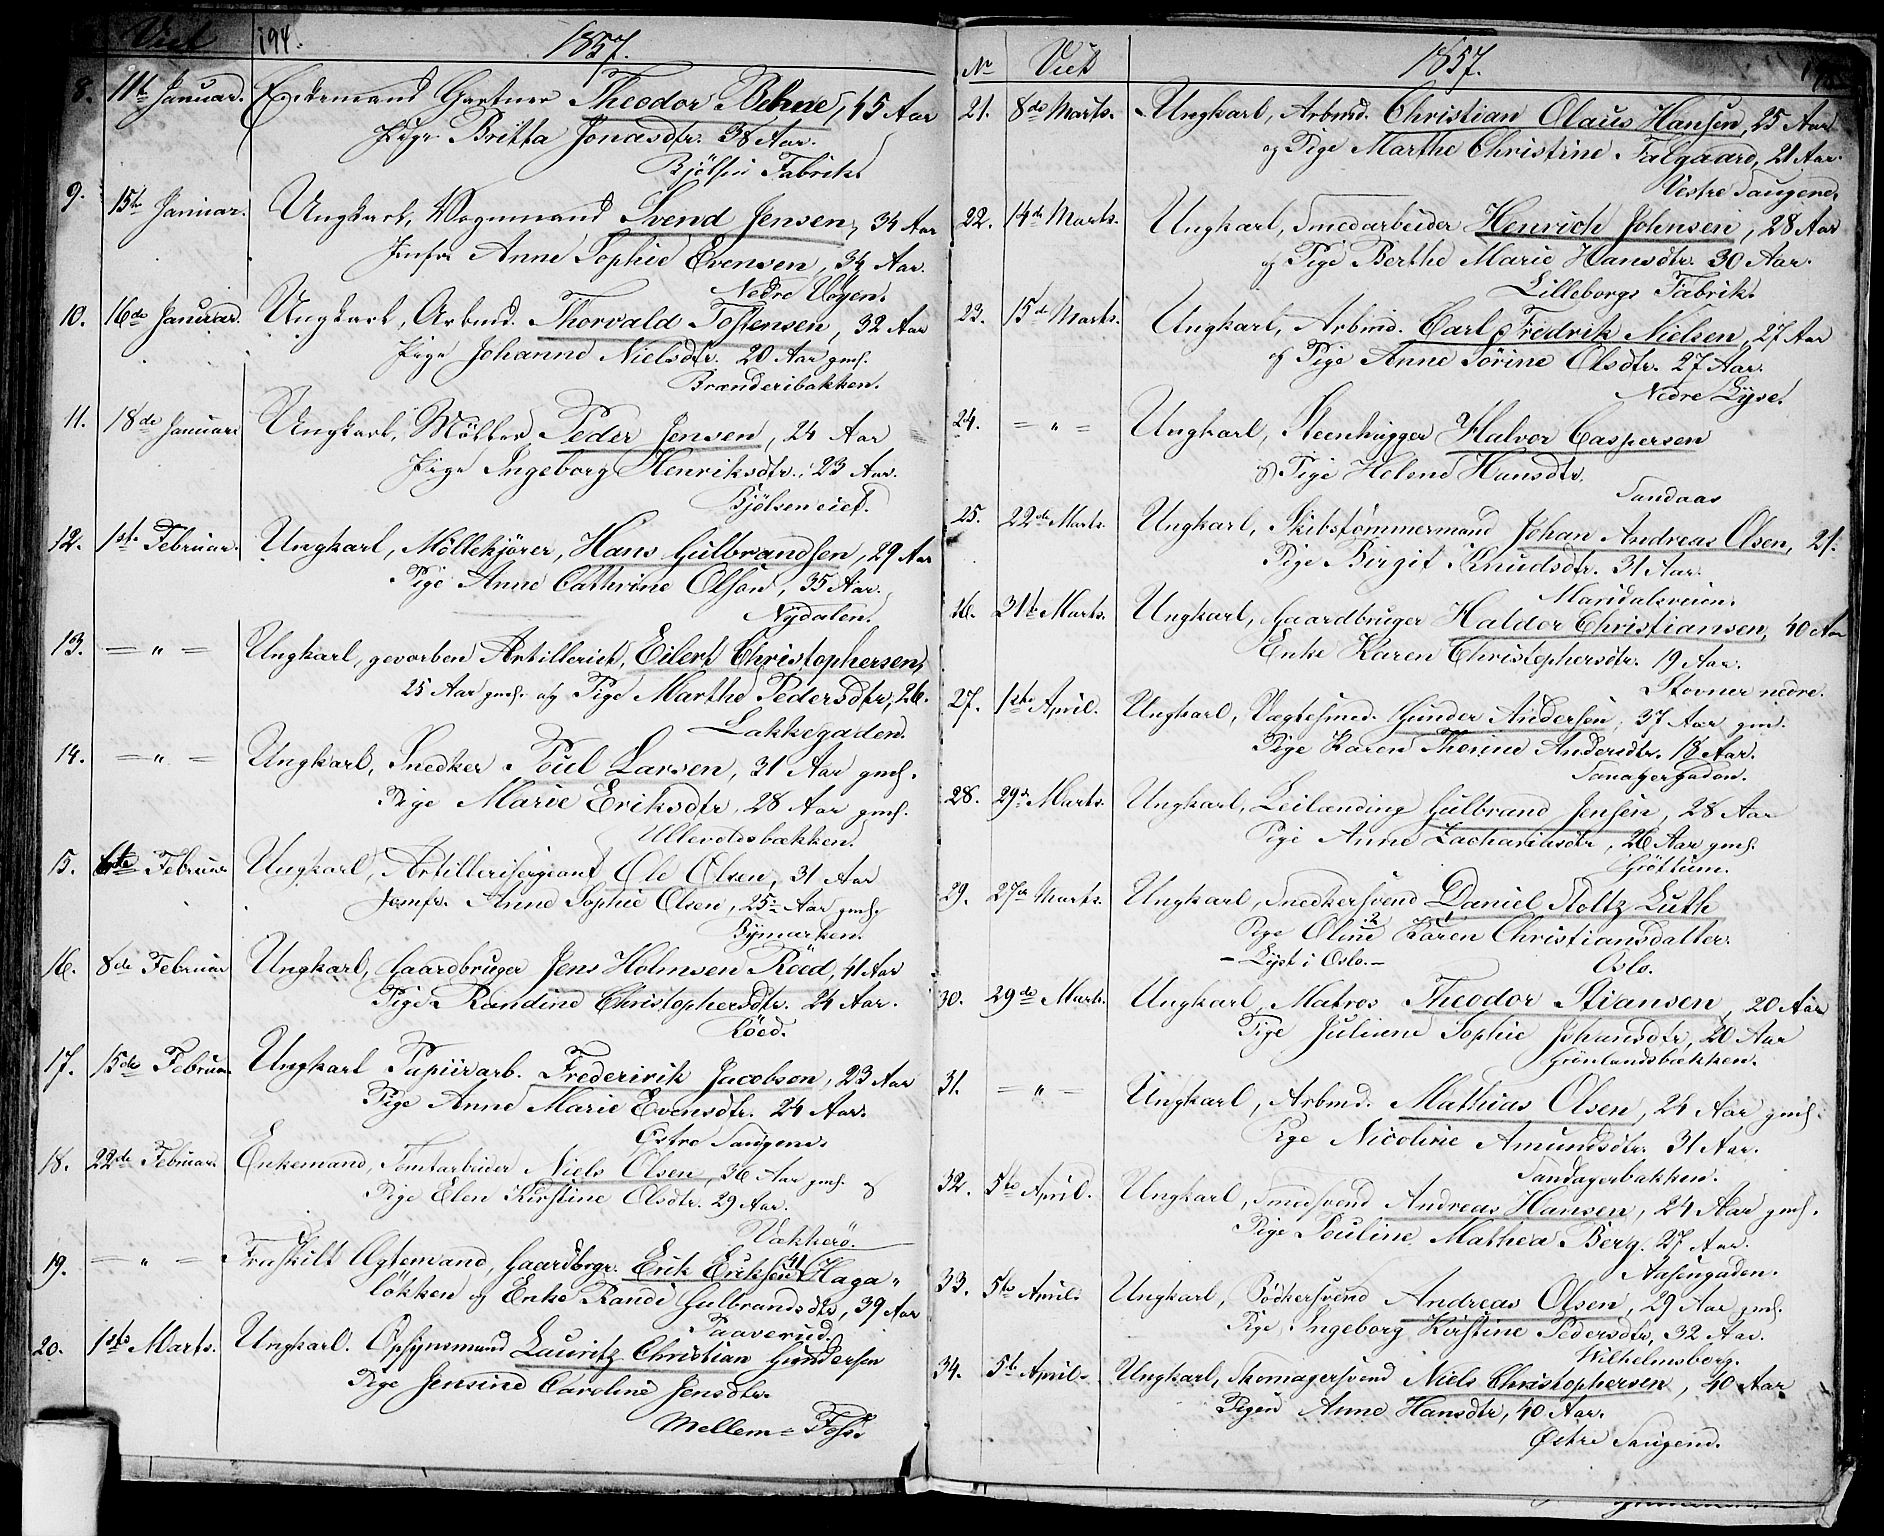 Viet 194. 1857.
8. 11te Januar. Enkemand Gartner Theodor Behne, 45 Aar
Pige Britta Jonasdtr. 38 Aar.
Bjölsen Fabrik.
9. 15de Januar. Ungkarl, Vognmand Svend Jensen, 34 Aar
Jomfr. Anne Sophie Evensen, 34 Aar.
Nedre Vøyen.
10. 16de Januar. Ungkarl, Arbmd. Thorvald Tostensen, 32 Aar
Pige Johanne Nielsdtr. 20 Aar gmh.
Brænderibakken.
11. 18de Januar. Ungkarl, Møller Peder Jensen, 24 Aar
Pige Ingeborg Henriksdtr. 23 Aar.
Bjölseneiet.
12. 1ste Februar. Ungkarl, Möllekjörer, Hans Gulbrandsen, 29 Aar
Pige Anne Cathrine Olsen, 35 Aar.
Nydalen.
13. — " — Ungkarl, gevorben Artillerist, Eilert Christophersen,
25 Aar gmh. og Pige Marthe Pedersdtr, 26.
Lakkegaden.
14. — " — Ungkarl, Snedker Poul Larsen, 31 Aar gmh.
Pige Marie Eriksdtr, 28 Aar gmh.
Ullevoldsbækken.
15. 6te Februar Ungkarl, Artillerisergeant Ole Olsen, 31 Aar
Jomfr. Anne Sophie Olsen, 25 Aar gmh.
Bymarken.
16. 8de Februar Ungkarl, Gaardbruger Jens Holmsen Röed, 41 Aar
Pige Randine Christophersdtr. 24 Aar.
Röed.
17. 15de Februar. Ungkarl Papiirarb. Frederirik Jacobsen, 23 Aar
Pige Anne Marie Evensdtr. 24 Aar.
Østre Saugene.
18. 22de Februar. Enkemand, Tomtarbeider Niels Olsen, 36 Aar gmh. og
Pige Elen Kirstine Olsdtr. 29 Aar.
Vækkerö.
19. — " — Fraskilt Ægtemand, Gaardbrgr. Erik Eriksen 41 Haga-
løkken og Enke Randi Gulbrandsdtr, 39 Aar
Paaverud.
20. 1ste Marts. Ungkarl. Opsynsmand Lauritz Christian Gundersen
Pige Jensine Caroline Jensdtr.
Mellem-Foss.
No Viet 1857.
21. 8de Marts. Ungkarl, Arbmd. Christian Olaus Hansen, 25 Aar
og Pige Marthe Christine Falgaard, 21 Aar.
Vestre Saugene.
22. 14de Marts. Ungkarl, Smedarbeider Henrich Johnsen, 28 Aar
og Pige Berthe Marie Hansdtr. 30 Aar.
Lilleborgs Fabrik.
23. 15de Marts. Ungkarl, Arbmd. Carl Fredrik Nielsen, 27 Aar
og Pige Anne Sörine Olsdtr. 27 Aar.
Nedre Lyse.
24. = " = Ungkarl, Steenhugger Halvor Caspersen
og Pige Helene Hansdtr.
Sandaas
25. 22de Marts. Ungkarl, Skibstömmermand Johan Andreas Olsen, 21.
Pige Birgit Knudsdtr. 31 Aar.
Maridalsveien.
26. 31te Marts. Ungkarl, Gaardbruger Haldor Christiansen, 40 Aar
Enke Karen Christophersdtr. 19 Aar.
Stovner nedre.
27. 1ste April. Ungkarl, Vægtesmed. Gunder Andersen, 37 Aar gm.
Pige Karen Thorine Andersdtr. 18 Aar.
28. 29de Marts. Ungkarl, Leilænding Gulbrand Jensen, 28 Aar
Pige Anne Zachariasdtr, 26 Aar gmh.
Gröttum.
29. 27de Marts. Ungkarl, Snedkersvend Daniel Stoltz Luth
Pige Oline 2 Karen 1 Christiansdatter.
— Lyst i Oslo. — Oslo.
30. 29de Marts. Ungkarl, Matros Theodor Stiansen, 20 Aar
Pige Juliane Sophie Johansdtr, 20 Aar
Grönlandsbækken.
31. — " — Ungkarl, Arbmd. Mathias Olsen, 24 Aar gmh.
Pige Nicoline Amundsdtr. 31 Aar.
Sandagerbakken.
32. 5te April. Ungkarl, Smedsvend Andreas Hansen, 24 Aar gmh.
Pige Pouline Mathea Berg. 27 Aar.
Aasengaden.
33. 5te April. Ungkarl, Bödkersvend Andreas Olsen, 29 Aar gmh.
Pige Ingeborg Kirstine Pedersdtr, 32 Aar.
Wilhelmsborg.
34. 5te April. Ungkarl, Skomagersvend Niels Christophersen, 40 Aar
Pigen Anne Hansdtr, 40 Aar.
Østre Saugene.